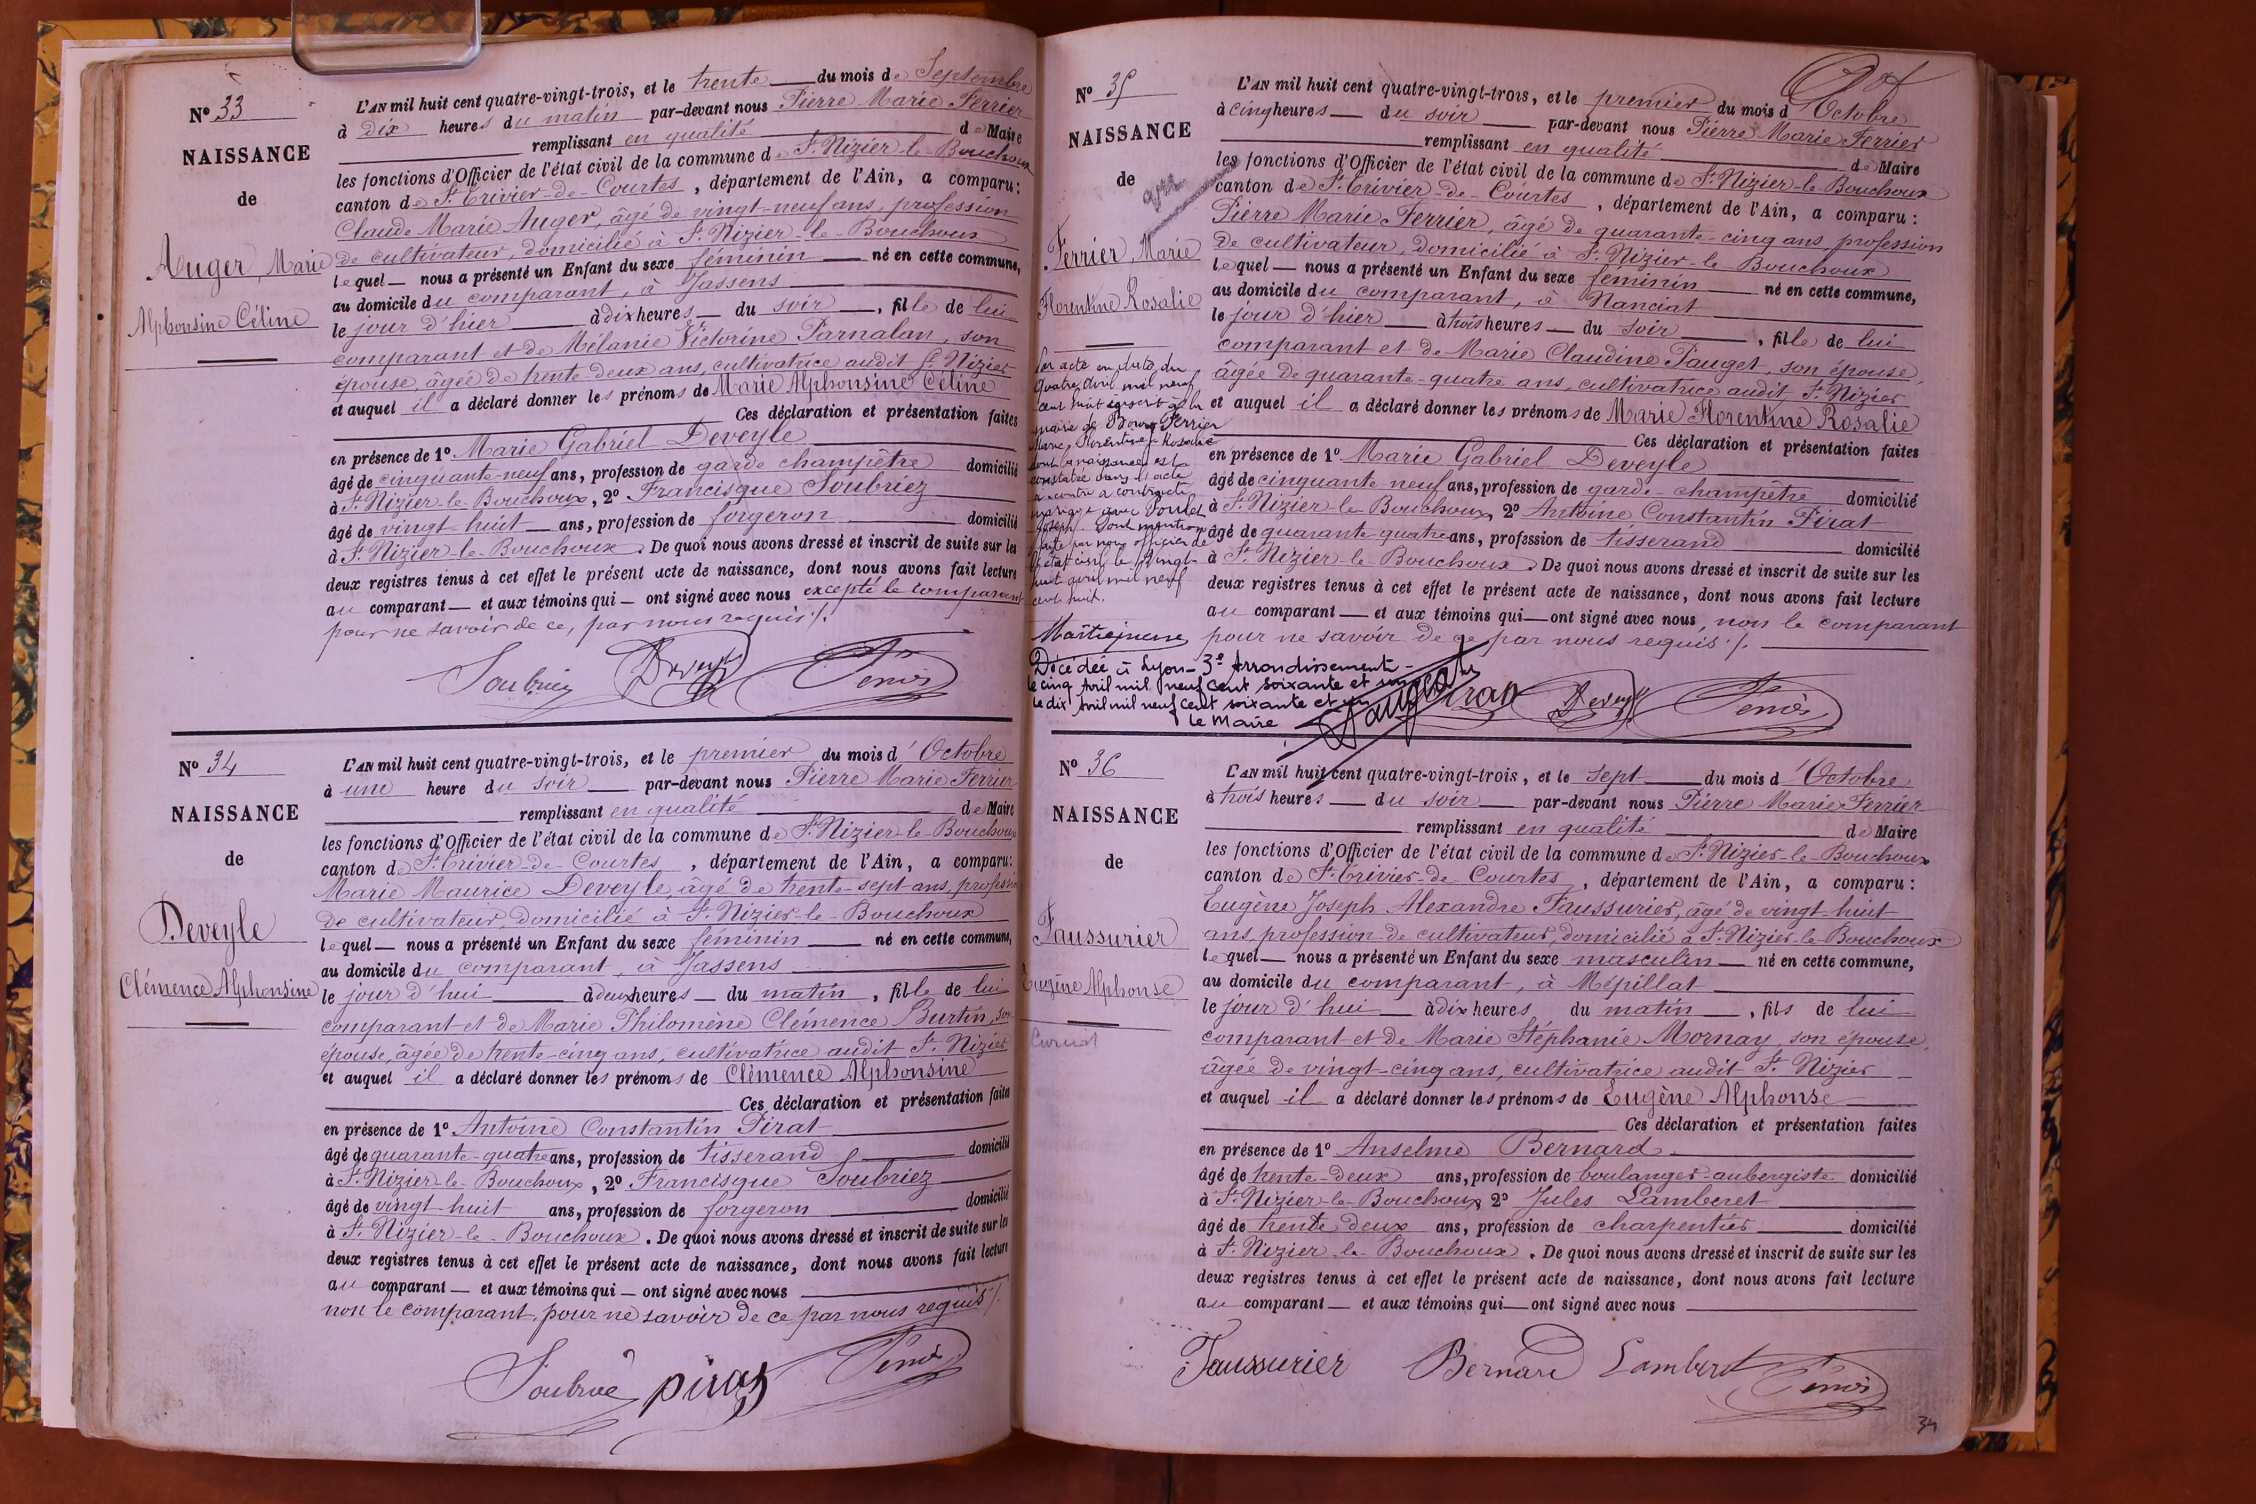 N° 33
NAISSANCE
de
Auger, Marie
Alphonsine Céline
L'AN mil huit cent quatre-vingt-trois, et le trente du mois de Septembre
à dix heures du matin par-devant nous Pierre Marie Ferrier
remplissant en qualité de Maire
les fonctions d'Officier de l'état civil de la commune de St. Nizier-le-Bouchoux
canton de St. Trivier-de-Courtes, département de l'Ain, a comparu :
Claude Marie Auger, âgé de vingt-neuf ans, profession
de cultivateur, domicilié à St. Nizier-le-Bouchoux
lequel nous a présenté un Enfant du sexe féminin né en cette commune,
au domicile du comparant, à Jassens
le jour d'hier à dix heures du soir, fille de lui
comparant et de Mélanie Victorine Parnalan, son
épouse, âgée de trente deux ans, cultivatrice audit St. Nizier
et auquel il a déclaré donner les prénoms de Marie Alphonsine Céline
Ces déclaration et présentation faites
en présence de 1° Marie Gabriel Deveyle
âgé de cinquante-neuf ans, profession de garde champêtre domicilié
à St. Nizier-le-Bouchoux, 2° Francisque Soubriez
âgé de vingt-huit ans, profession de forgeron domicilié
à St. Nizier-le-Bouchoux. De quoi nous avons dressé et inscrit de suite sur les
deux registres tenus à cet effet le présent acte de naissance, dont nous avons fait lecture
au comparant et aux témoins qui ont signé avec nous excepté le comparant
pour ne savoir de ce, par nous requis ./.
Soubriez Deveyle
N° 34
NAISSANCE
de
Deveyle
Clémence Alphonsine
L'AN mil huit cent quatre-vingt-trois, et le premier du mois d'Octobre
à une heure du soir par-devant nous Pierre Marie Ferrier
remplissant en qualité de Maire
les fonctions d'Officier de l'état civil de la commune de St. Nizier-le-Bouchoux
canton de St. Trivier-de-Courtes, département de l'Ain, a comparu :
Marie Maurice Deveyle, âgé de trente-sept ans, profession
de cultivateur, domicilié à St. Nizier-le-Bouchoux
lequel nous a présenté un Enfant du sexe féminin né en cette commune,
au domicile du comparant, à Jassens
le jour d'hui à deux heures du matin, fille de lui
comparant et de Marie Philomène Clémence Burtin, son
épouse, âgée de trente-cinq ans, cultivatrice audit St. Nizier
et auquel il a déclaré donner les prénoms de Clémence Alphonsine
Ces déclaration et présentation faites
en présence de 1° Antoine Constantin Pirat
âgé de quarante-quatre ans, profession de tisserand domicilié
à St. Nizier-le-Bouchoux, 2° Francisque Soubriez
âgé de vingt-huit ans, profession de forgeron domicilié
à St. Nizier-le-Bouchoux. De quoi nous avons dressé et inscrit de suite sur les
deux registres tenus à cet effet le présent acte de naissance, dont nous avons fait lecture
au comparant et aux témoins qui ont signé avec nous
non le comparant, pour ne savoir de ce par nous requis ./.
pirat
N° 35
NAISSANCE
de
Ferrier, Marie
Florentine Rosalie
Par acte en date du
quatre avril mil neuf
cent huit inscrit à la
mairie de Bourg Ferrier
Marie Florentine Rosalie
dont la naissance est
constatée dans l'acte
ci-contre a contracté
mariage avec Poulet
Joseph. Dont mention
faite par nous officier de
l'état civil le vingt-
huit avril mil neuf
cent huit.
Décédée à Lyon 3e Arrondissement
le cinq Avril mil neuf cent soixante et un
Le dix Avril mil neuf cent soixante et un
Le Maire
L'AN mil huit cent quatre-vingt-trois, et le premier du mois d'Octobre
à cinq heures du soir par-devant nous Pierre Marie Ferrier
remplissant en qualité de Maire
les fonctions d'Officier de l'état civil de la commune de St. Nizier-le-Bouchoux
canton de St. Trivier-de-Courtes, département de l'Ain, a comparu :
Pierre Marie Ferrier, âgé de quarante-cinq ans, profession
de cultivateur, domicilié à St. Nizier-le-Bouchoux
lequel nous a présenté un Enfant du sexe féminin né en cette commune,
au domicile du comparant, à Nanciat
le jour d'hier à trois heures du soir, fille de lui
comparant et de Marie Claudine Pauget, son épouse,
âgée de quarante-quatre ans, cultivatrice audit St. Nizier
et auquel il a déclaré donner les prénoms de Marie Florentine Rosalie
Ces déclaration et présentation faites
en présence de 1° Marie Gabriel Deveyle
âgé de cinquante neuf ans, profession de garde-champêtre domicilié
à St. Nizier-le-Bouchoux, 2° Antoine Constantin Pirat
âgé de quarante-quatre ans, profession de tisserand domicilié
à St. Nizier-le-Bouchoux. De quoi nous avons dressé et inscrit de suite sur les
deux registres tenus à cet effet le présent acte de naissance, dont nous avons fait lecture
au comparant et aux témoins qui ont signé avec nous, non le comparant
pour ne savoir de ce par nous requis ./.
Deveyle
N° 36
NAISSANCE
de
Faussurier
Eugène Alphonse
L'AN mil huit cent quatre-vingt-trois, et le sept du mois d'Octobre
à trois heures du soir par-devant nous Pierre Marie Ferrier
remplissant en qualité de Maire
les fonctions d'Officier de l'état civil de la commune de St. Nizier-le-Bouchoux
canton de St. Trivier-de-Courtes, département de l'Ain, a comparu :
Eugène Joseph Alexandre Faussurier, âgé de vingt-huit
ans, profession de cultivateur, domicilié à St. Nizier-le-Bouchoux
lequel nous a présenté un Enfant du sexe masculin né en cette commune,
au domicile du comparant, à Mépillat
le jour d'hui à dix heures du matin, fils de lui
comparant et de Marie Stéphanie Mornay, son épouse,
âgée de vingt-cinq ans, cultivatrice audit St. Nizier
et auquel il a déclaré donner les prénoms de Eugène Alphonse
Ces déclaration et présentation faites
en présence de 1° Anselme Bernard
âgé de trente-deux ans, profession de boulanger-aubergiste domicilié
à St. Nizier-le-Bouchoux, 2° Jules Lamberet
âgé de trente deux ans, profession de charpentier domicilié
à St. Nizier-le-Bouchoux. De quoi nous avons dressé et inscrit de suite sur les
deux registres tenus à cet effet le présent acte de naissance, dont nous avons fait lecture
au comparant et aux témoins qui ont signé avec nous
Faussurier Bernard Lamberet
34